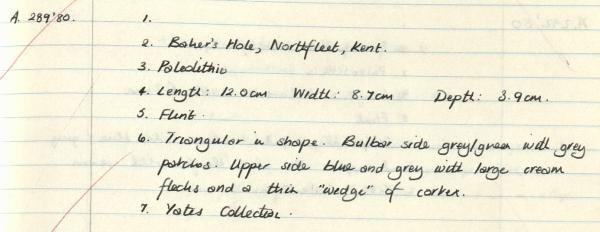 A. 289'80. 1.
2. Baker's Hole, Northfleet, Kent.
3. Paleolithic
4. Length: 12.0cm Width: 8.7cm Depth: 3.9cm.
5. Flint.
6. Triangular in shape. Bulbar side grey/green with grey
patches. Upper side blue and grey with large cream
flecks and a thin "wedge" of cortex.
7. Yates Collection.